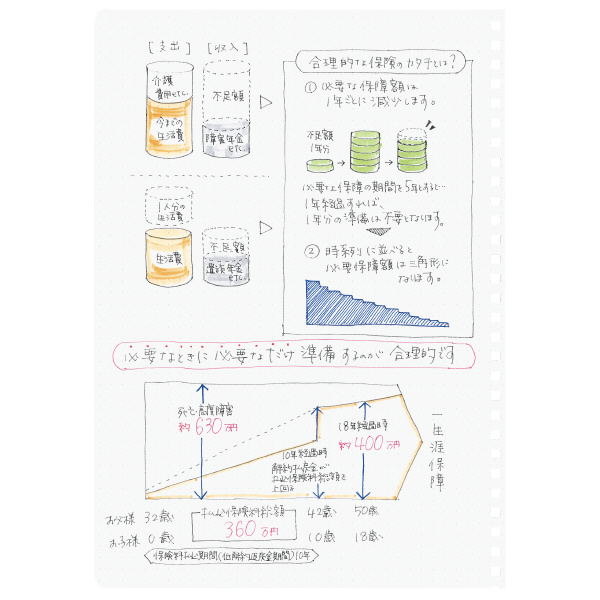 [支出] [収入]
介護
費用etc.
今までの
生活費
不足額
障害年金
etc.
1人分の
生活費
生活費
不足額
遺族年金
etc.
合理的な保険のカタチとは?
① 必要な保障額は
1年ごとに減少します。
不足額
1年分
必要な保障の期間を5年とすると…
1年経過すれば、
1年分の準備は不要となります。
② 時系列に並べると
必要保障額は三角形に
なります。
必要なときに必要なだけ準備するのが合理的です
死亡・高度障害
約630万円
10年経過時
解約払戻金が
払込保険料総額を
上回る
18年経過時
約400万円
一生涯保障
お父様 32歳 払込保険料総額 42歳 50歳
360万円
お子様 0歳 10歳 18歳
保険料払込期間(低解約払戻金期間)10年